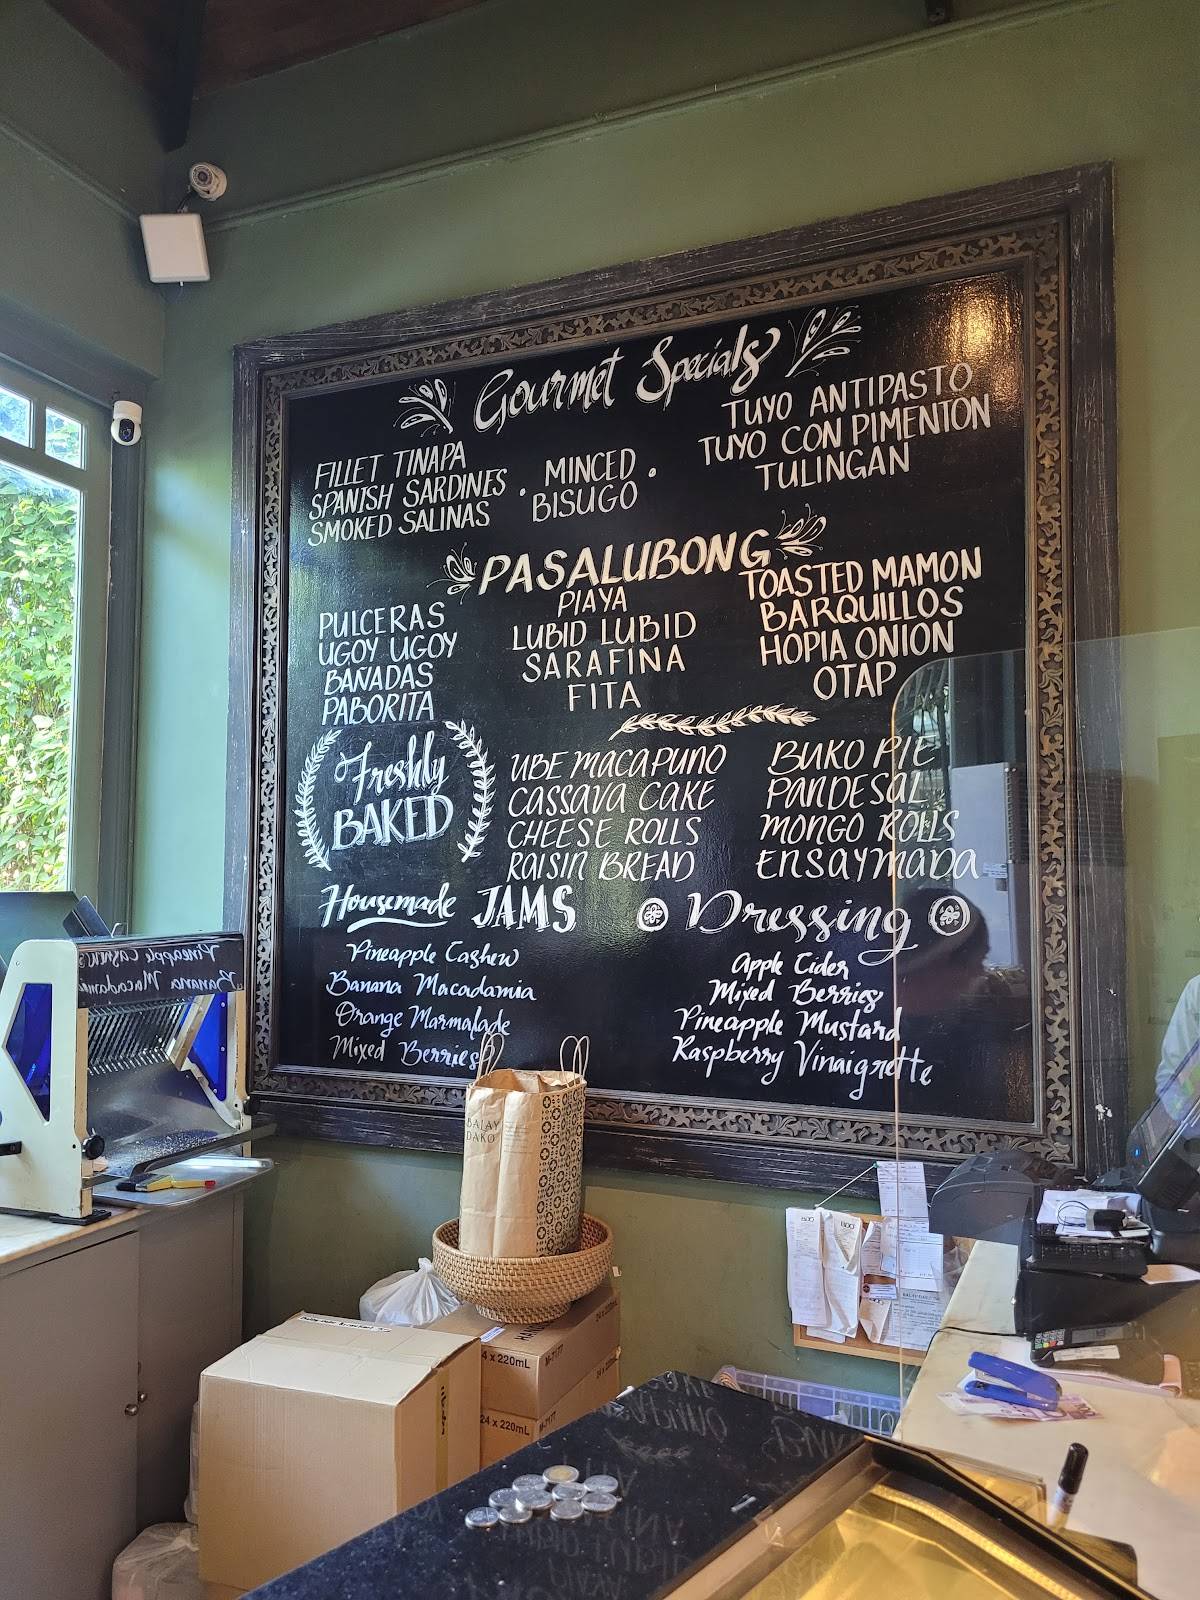 Gourmet Specials
FILLET TINAPA
SPANISH SARDINES
SMOKED SALINAS
• MINCED •
BISUGO
TUYO ANTIPASTO
TUYO CON PIMENTON
TULINGAN
PASALUBONG
PULCERAS
UGOY UGOY
BAÑADAS
PABORITA
PIAYA
LUBID LUBID
SARAFINA
FITA
TOASTED MAMON
BARQUILLOS
HOPIA ONION
OTAP
Freshly
BAKED
UBE MACAPUNO
CASSAVA CAKE
CHEESE ROLLS
RAISIN BREAD
BUKO PIE
PANDESAL
MONGO ROLLS
ENSAYMADA
Housemade JAMS
Pineapple Cashew
Banana Macadamia
Orange Marmalade
Mixed Berries
Dressing
Apple Cider
Mixed Berries
Pineapple Mustard
Raspberry Vinaigrette
BALAY
DAKO
4 x 220mL
M-7177
24 x 220mL
M-7177
BDO
BDO